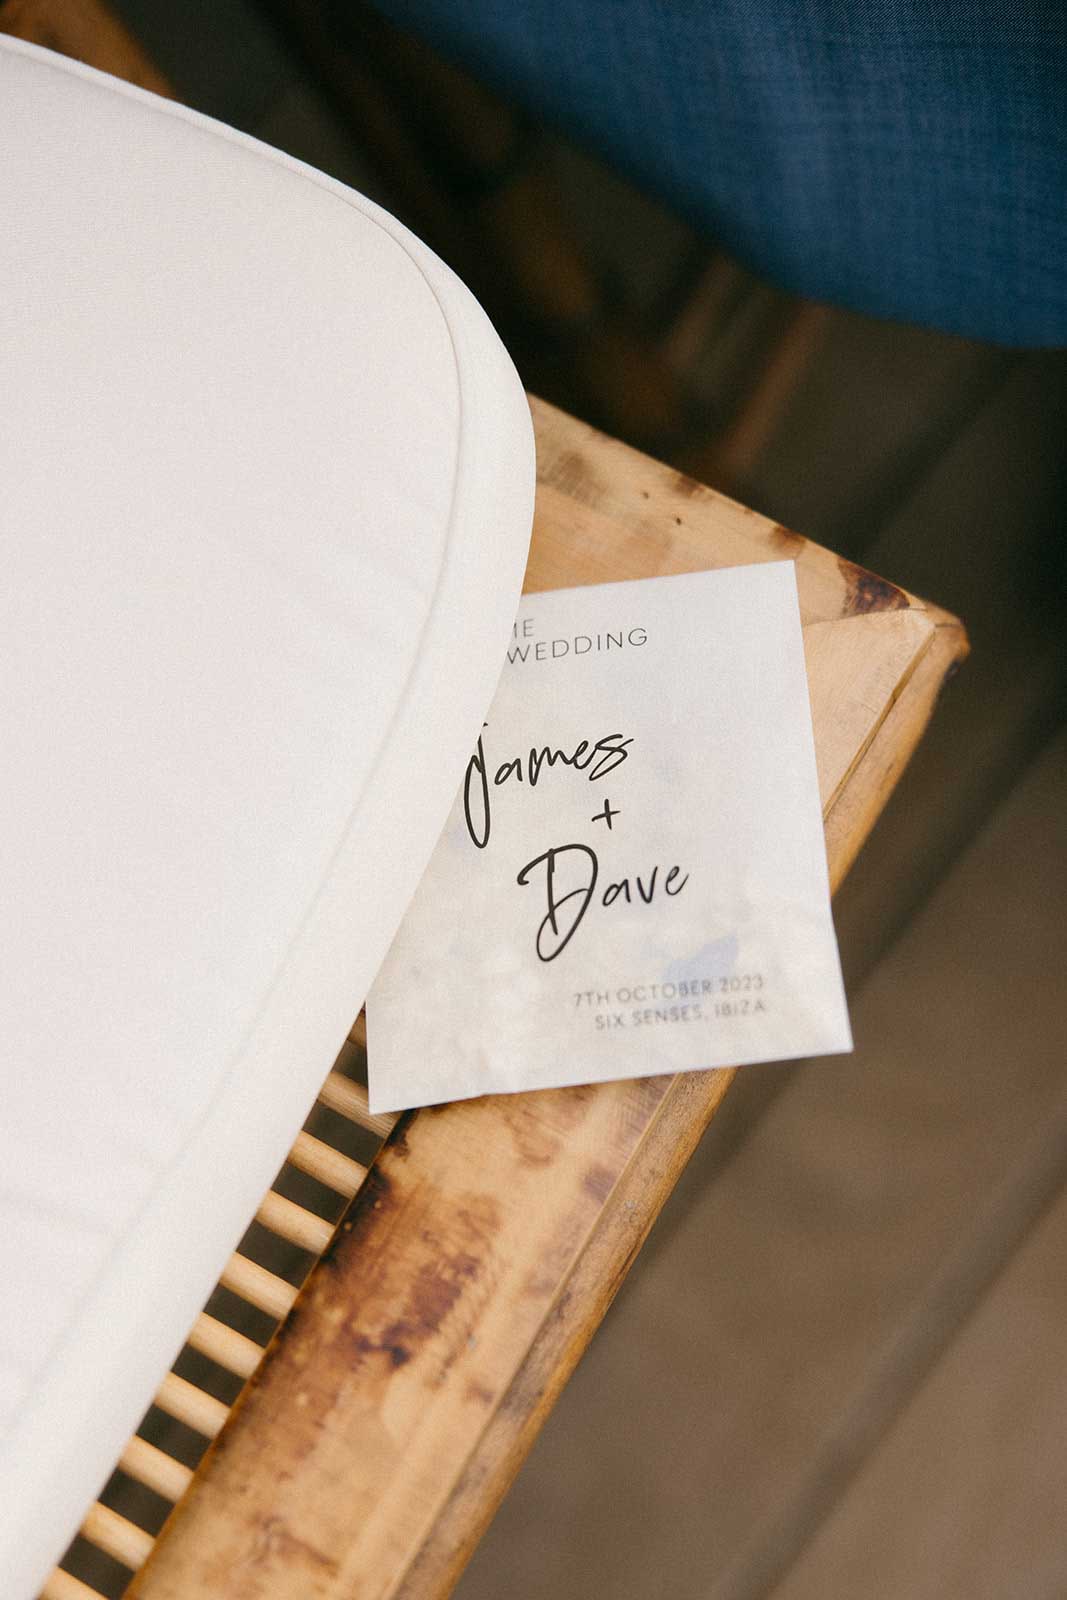 WEDDING
James
+
Dave
7TH OCTOBER 2023
SIX SENSES, IBIZA